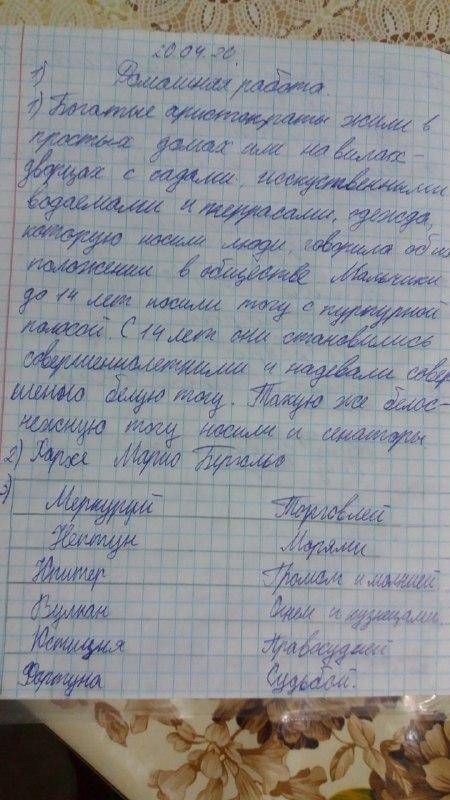 20.04.20.
1) Домашняя работа.
1) Богатые аристократы жили в
простых домах или на вилах-
дворцах с садами, исскуственными
водаемами и террасами, одежда,
которую носили люди, говорила об их
положении в обществе Мальчики
до 14 лет носили тогу с пурпурной
полосой. С 14 лет они становились
совершеннолетними и надевали совер
шенно белую тогу. Такую же белос-
нежную тогу носили и сенаторы
2) Марио
3)
Меркурий Торговлей
Нептун Морями
Юпитер Громом и молнией
Вулкан Огнем и кузнецами
Юстиция Правосудий
Фортуна Судьбой.